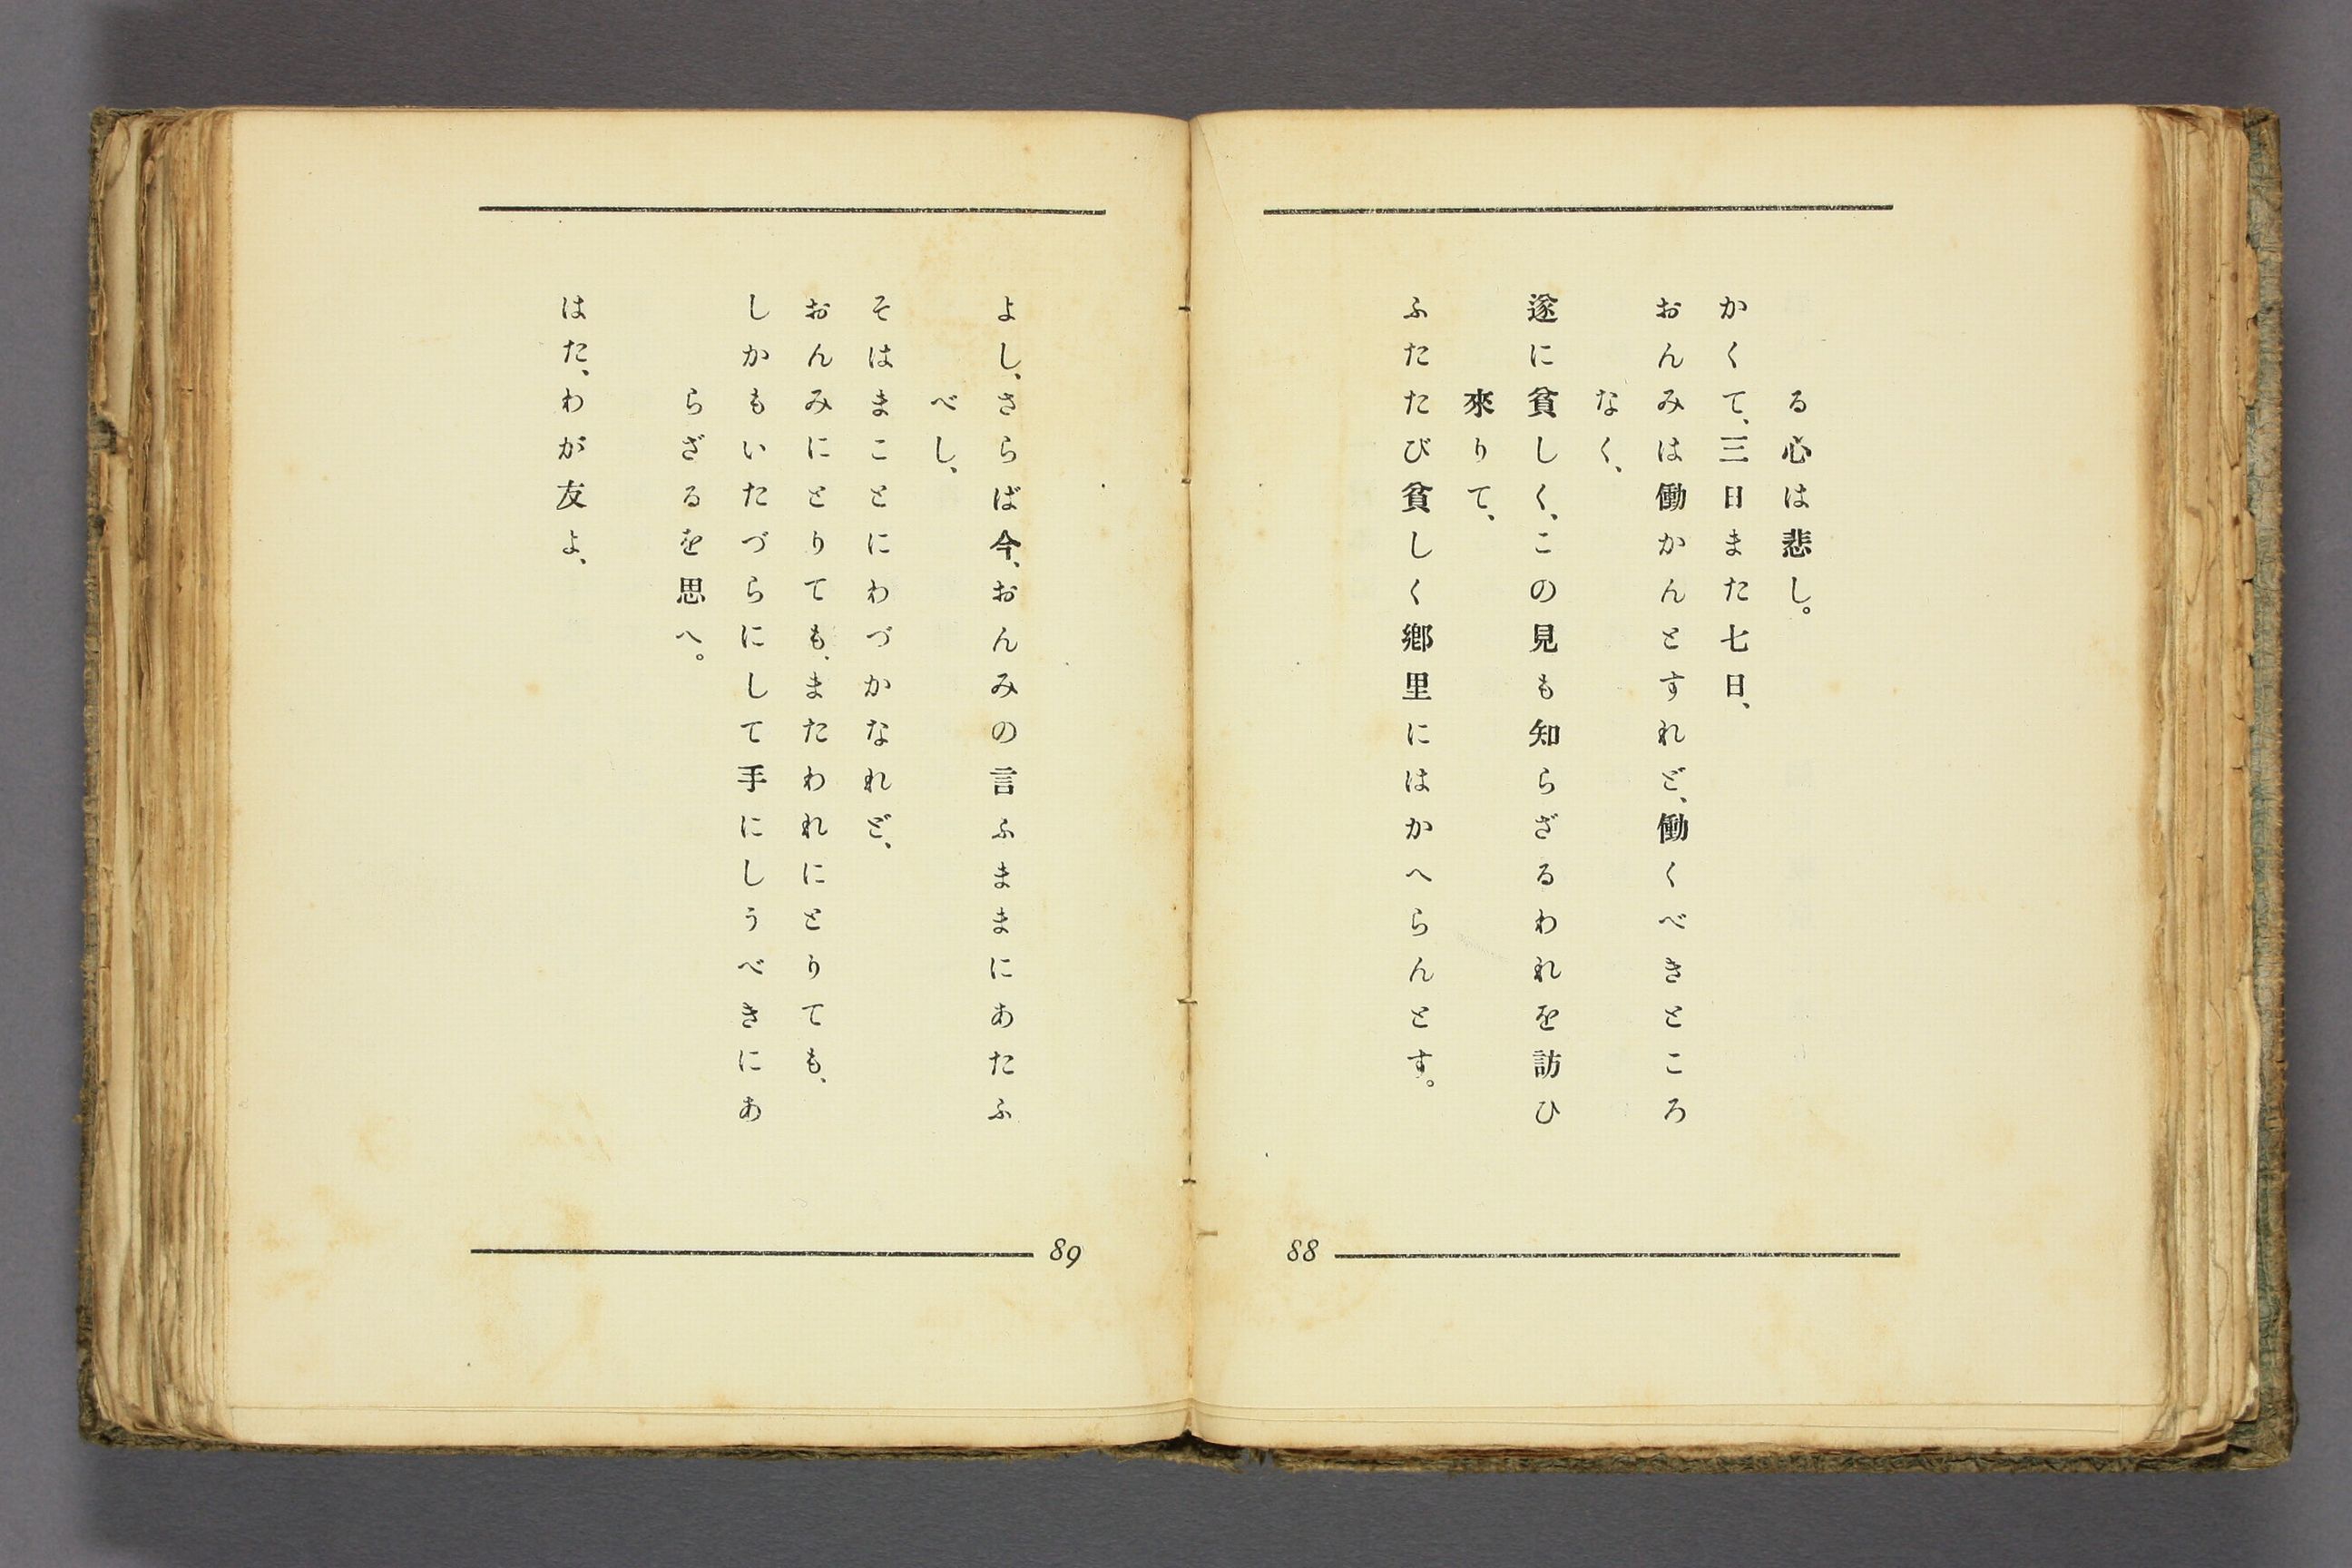 る心は悲し。
かくて、三日また七日、
おんみは働かんとすれど、働くべきところ
なく、
遂に貧しく、この見も知らざるわれを訪ひ
來りて、
ふたたび貧しく鄕里にはかへらんとす。
88
よし、さらば今、おんみの言ふままにあたふ
べし、
そはまことにわづかなれど、
おんみにとりても、またわれにとりても、
しかもいたづらにして手にしうべきにあ
らざるを思へ。
はた、わが友よ、
89